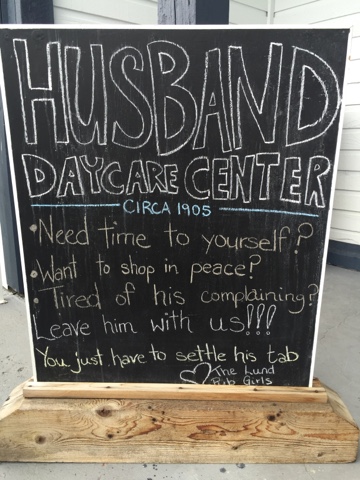 HUSBAND
DAYCARE CENTER
CIRCA 1905
• Need time to yourself?
• Want to shop in peace?
• Tired of his complaining?
Leave him with us!!!
You just have to settle his tab
♡ The Lund
Pub Girls